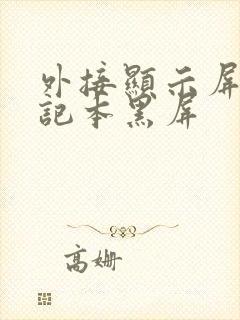 外接顯示屏
記本黑屏
高姗